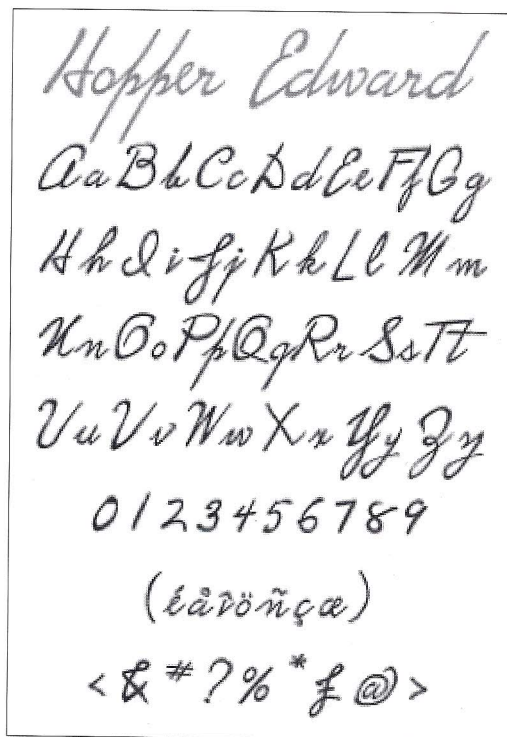 Hopper Edward
AaBbCcDdEeFfGg
HhIiJjKkLlMm
NnOoPpQqRrSsTt
UuVvWwXxYyZz
0123456789
(éåîöñçæ)
<&#?%*£@>